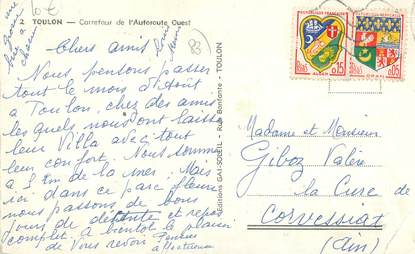 10€
2 TOULON — Carrefour de l'Autoroute Ouest
83
Chers amis
Nous pensons passer
tout le mois d'août
à Toulon, chez des amis
les quels nous ont laissé
leur Villa avec tout
leur confort. Nous sommes
à 3 km de la mer. Mais
ici dans ce parc fleuri
nous passons de bons
jours de détente et repos
complet. A bientôt le plaisir
de vous revoir
Editions GAI-SOLEIL - Rue Bonfante - TOULON
REPUBLIQUE FRANÇAISE
POSTES
0,15
ALGER
POSTES
0,05
ORAN
Madame et Monsieur
Giboz Valère
la Cure de
CORVESSIAT
(Ain)